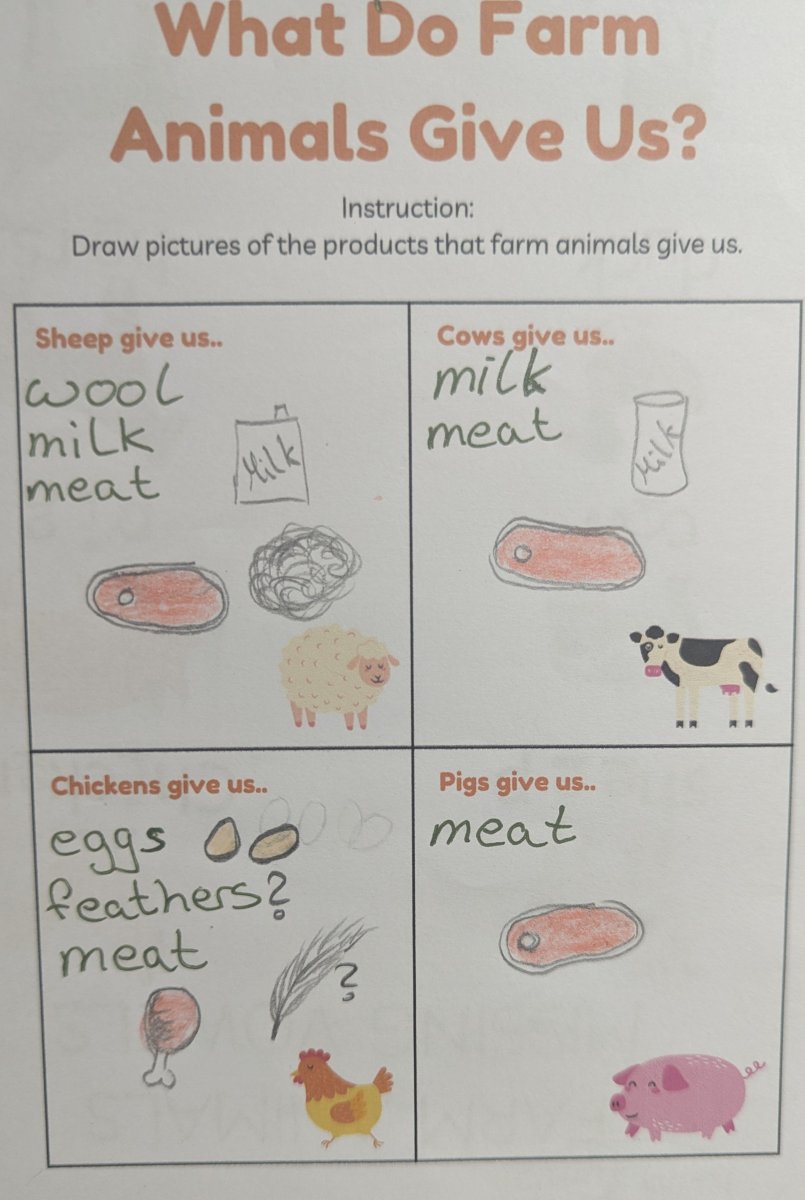 What Do Farm
Animals Give Us?
Instruction:
Draw pictures of the products that farm animals give us.
Sheep give us..
wool
milk
meat
Milk
Cows give us..
milk
meat
Milk
Chickens give us..
eggs
feathers?
meat
?
Pigs give us..
meat